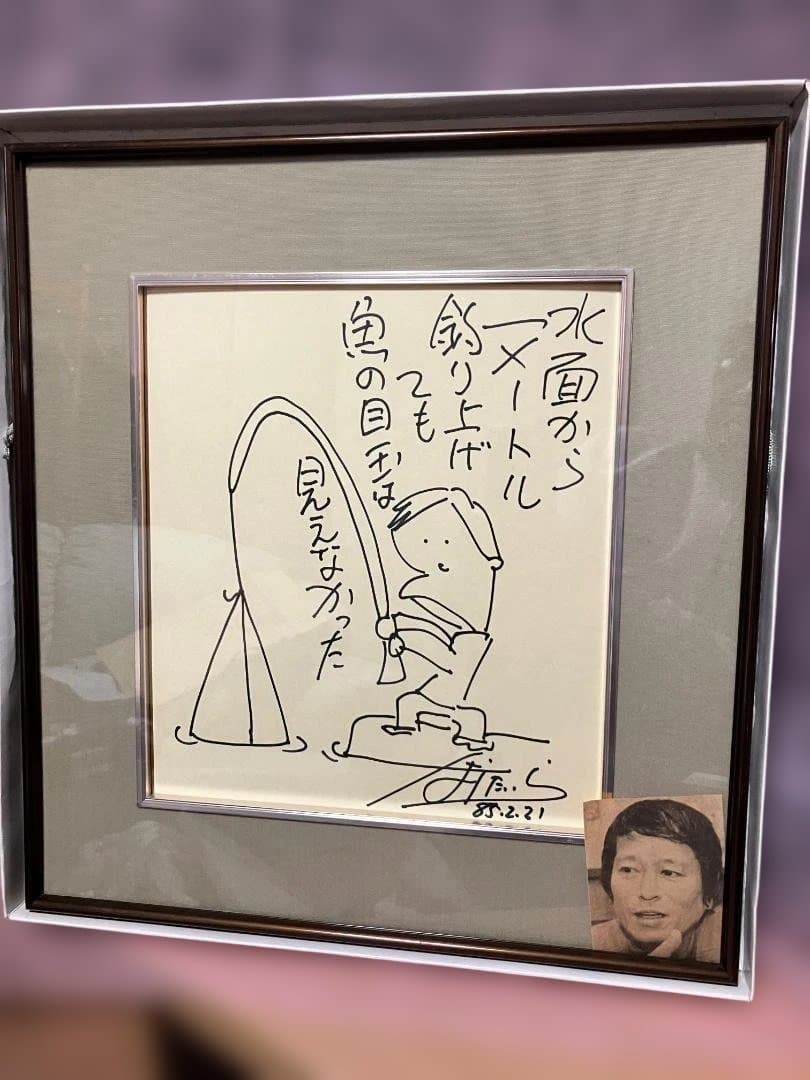 水面から
一メートル
釣り上げ
ても
魚の目玉は
見えなかった
85.2.21